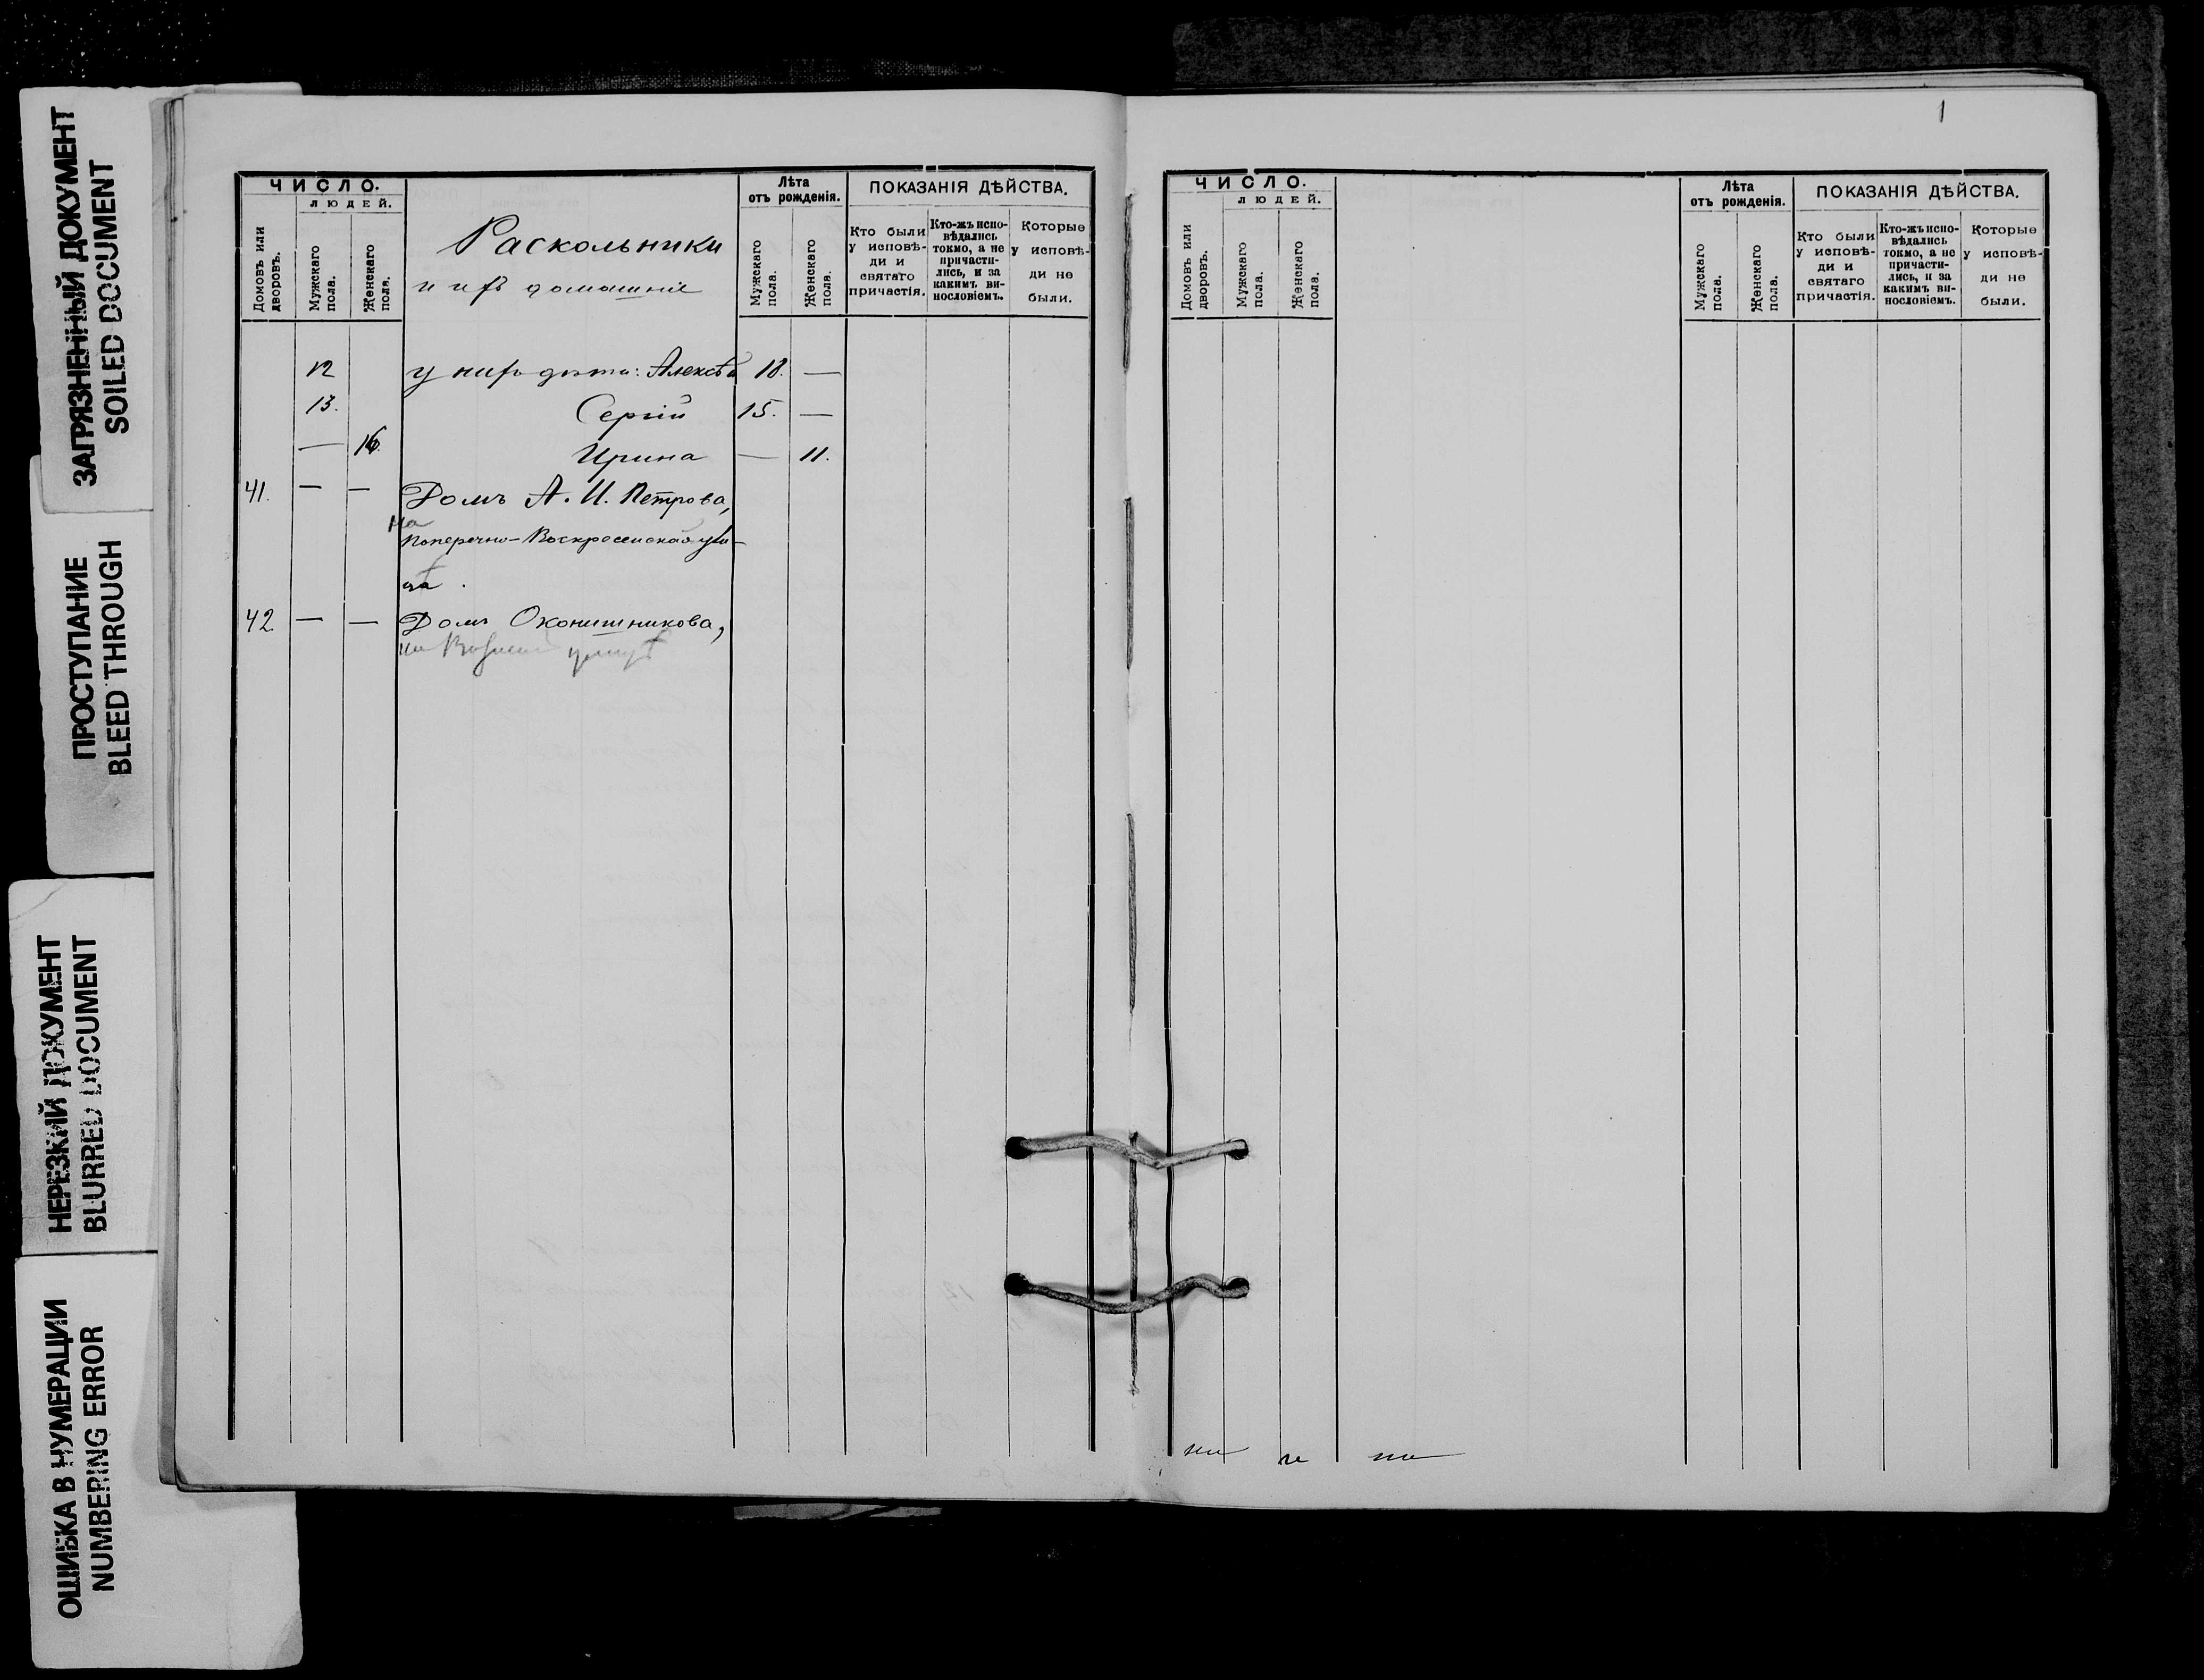 ЗАГРЯЗНЕННЫЙ ДОКУМЕНТ
SOILED DOCUMENT
ПРОСТУПАНИЕ
BLEED THROUGH
НЕРЕЗКИЙ ДОКУМЕНТ
BLURRED DOCUMENT
ОШИБКА В НУМЕРАЦИИ
NUMBERING ERROR
ЧИСЛО.
людей.
Домовъ или
дворовъ.
Мужскаго
пола.
Женскаго
пола.
Раскольники
и ихъ домашніе
Лѣта
отъ рожденія.
Мужскаго
пола.
Женскаго
пола.
ПОКАЗАНІЯ ДѢЙСТВА.
Кто были
у исповѣ-
ди и
святаго
причастія.
Кто-жъ испо-
вѣдались
токмо, а не
причасти-
лись, и за
какимъ ви-
нословіемъ.
Которые
у исповѣ-
ди не
были.
12 у нихъ дѣти: Алексѣй 18. —
13. Сергій 15. —
— 16. Ирина — 11.
41. — — Домъ А. И. Петрова,
на
Поперечно-Воскресенской ули-
цѣ.
42. — — Домъ Оконишникова,
на улицѣ
1
ЧИСЛО.
людей.
Домовъ или
дворовъ.
Мужскаго
пола.
Женскаго
пола.
Лѣта
отъ рожденія.
Мужскаго
пола.
Женскаго
пола.
ПОКАЗАНІЯ ДѢЙСТВА.
Кто были
у исповѣ-
ди и
святаго
причастія.
Кто-жъ испо-
вѣдались
токмо, а не
причасти-
лись, и за
какимъ ви-
нословіемъ.
Которые
у исповѣ-
ди не
были.